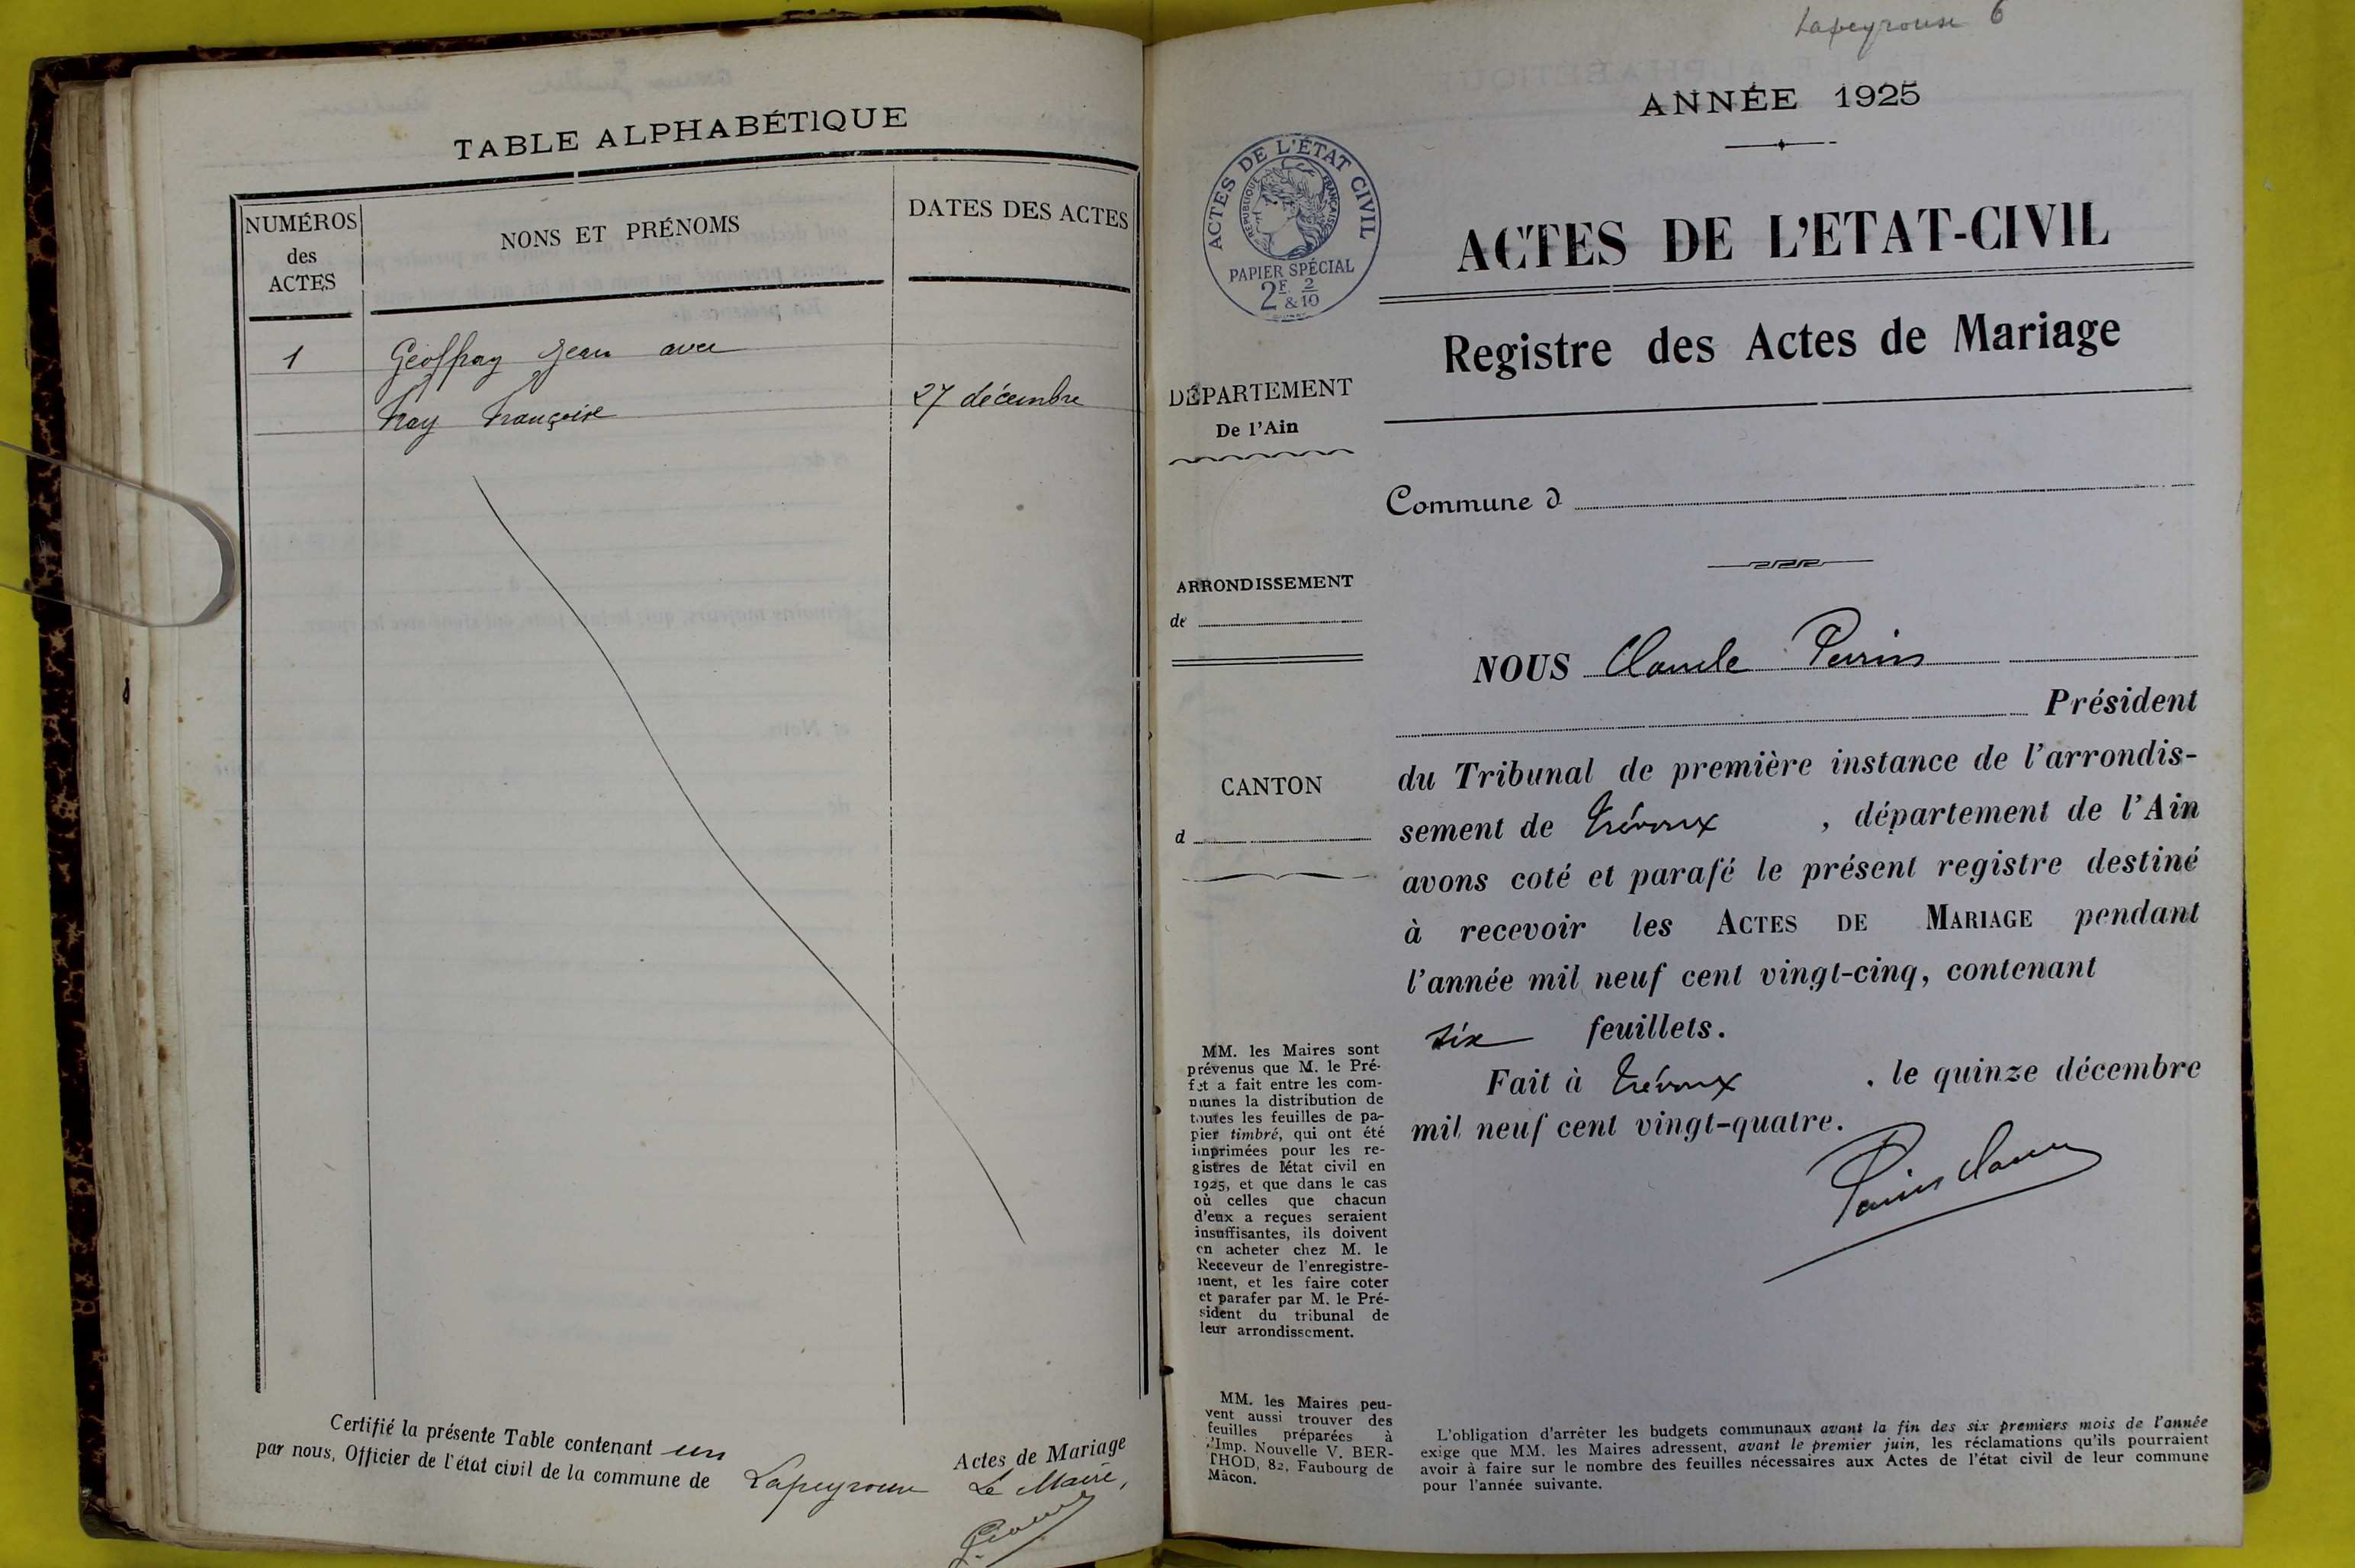 TABLE ALPHABÉTIQUE
NUMÉROS
des
ACTES
NONS ET PRÉNOMS
DATES DES ACTES
1
Geoffray Jean avec
Françoise
27 décembre
Certifié la présente Table contenant un Actes de Mariage
par nous, Officier de l'état civil de la commune de Lapeyrouse Le Maire,
Lapeyrouse 6
ANNÉE 1925
ACTES DE L'ÉTAT CIVIL
RÉPUBLIQUE FRANÇAISE
PAPIER SPÉCIAL
2F & 2/10
ACTES DE L'ETAT-CIVIL
Registre des Actes de Mariage
DÉPARTEMENT
De l'Ain
Commune d
ARRONDISSEMENT
de
CANTON
d
NOUS Claude Perrin
Président
du Tribunal de première instance de l'arrondis-
sement de Trévoux , département de l'Ain
avons coté et parafé le présent registre destiné
à recevoir les ACTES DE MARIAGE pendant
l'année mil neuf cent vingt-cinq, contenant
six feuillets.
Fait à Trévoux , le quinze décembre
mil neuf cent vingt-quatre.
Perrin Claude
MM. les Maires sont
prévenus que M. le Pré-
fet a fait entre les com-
munes la distribution de
toutes les feuilles de pa-
pier timbré, qui ont été
imprimées pour les re-
gistres de l'état civil en
1925, et que dans le cas
où celles que chacun
d'eux a reçues seraient
insuffisantes, ils doivent
en acheter chez M. le
Receveur de l'enregistre-
ment, et les faire coter
et parafer par M. le Pré-
sident du tribunal de
leur arrondissement.
MM. les Maires peu-
vent aussi trouver des
feuilles préparées à
l'Imp. Nouvelle V. BER-
THOD, 82, Faubourg de
Mâcon.
L'obligation d'arrêter les budgets communaux avant la fin des six premiers mois de l'année
exige que MM. les Maires adressent, avant le premier juin, les réclamations qu'ils pourraient
avoir à faire sur le nombre des feuilles nécessaires aux Actes de l'état civil de leur commune
pour l'année suivante.